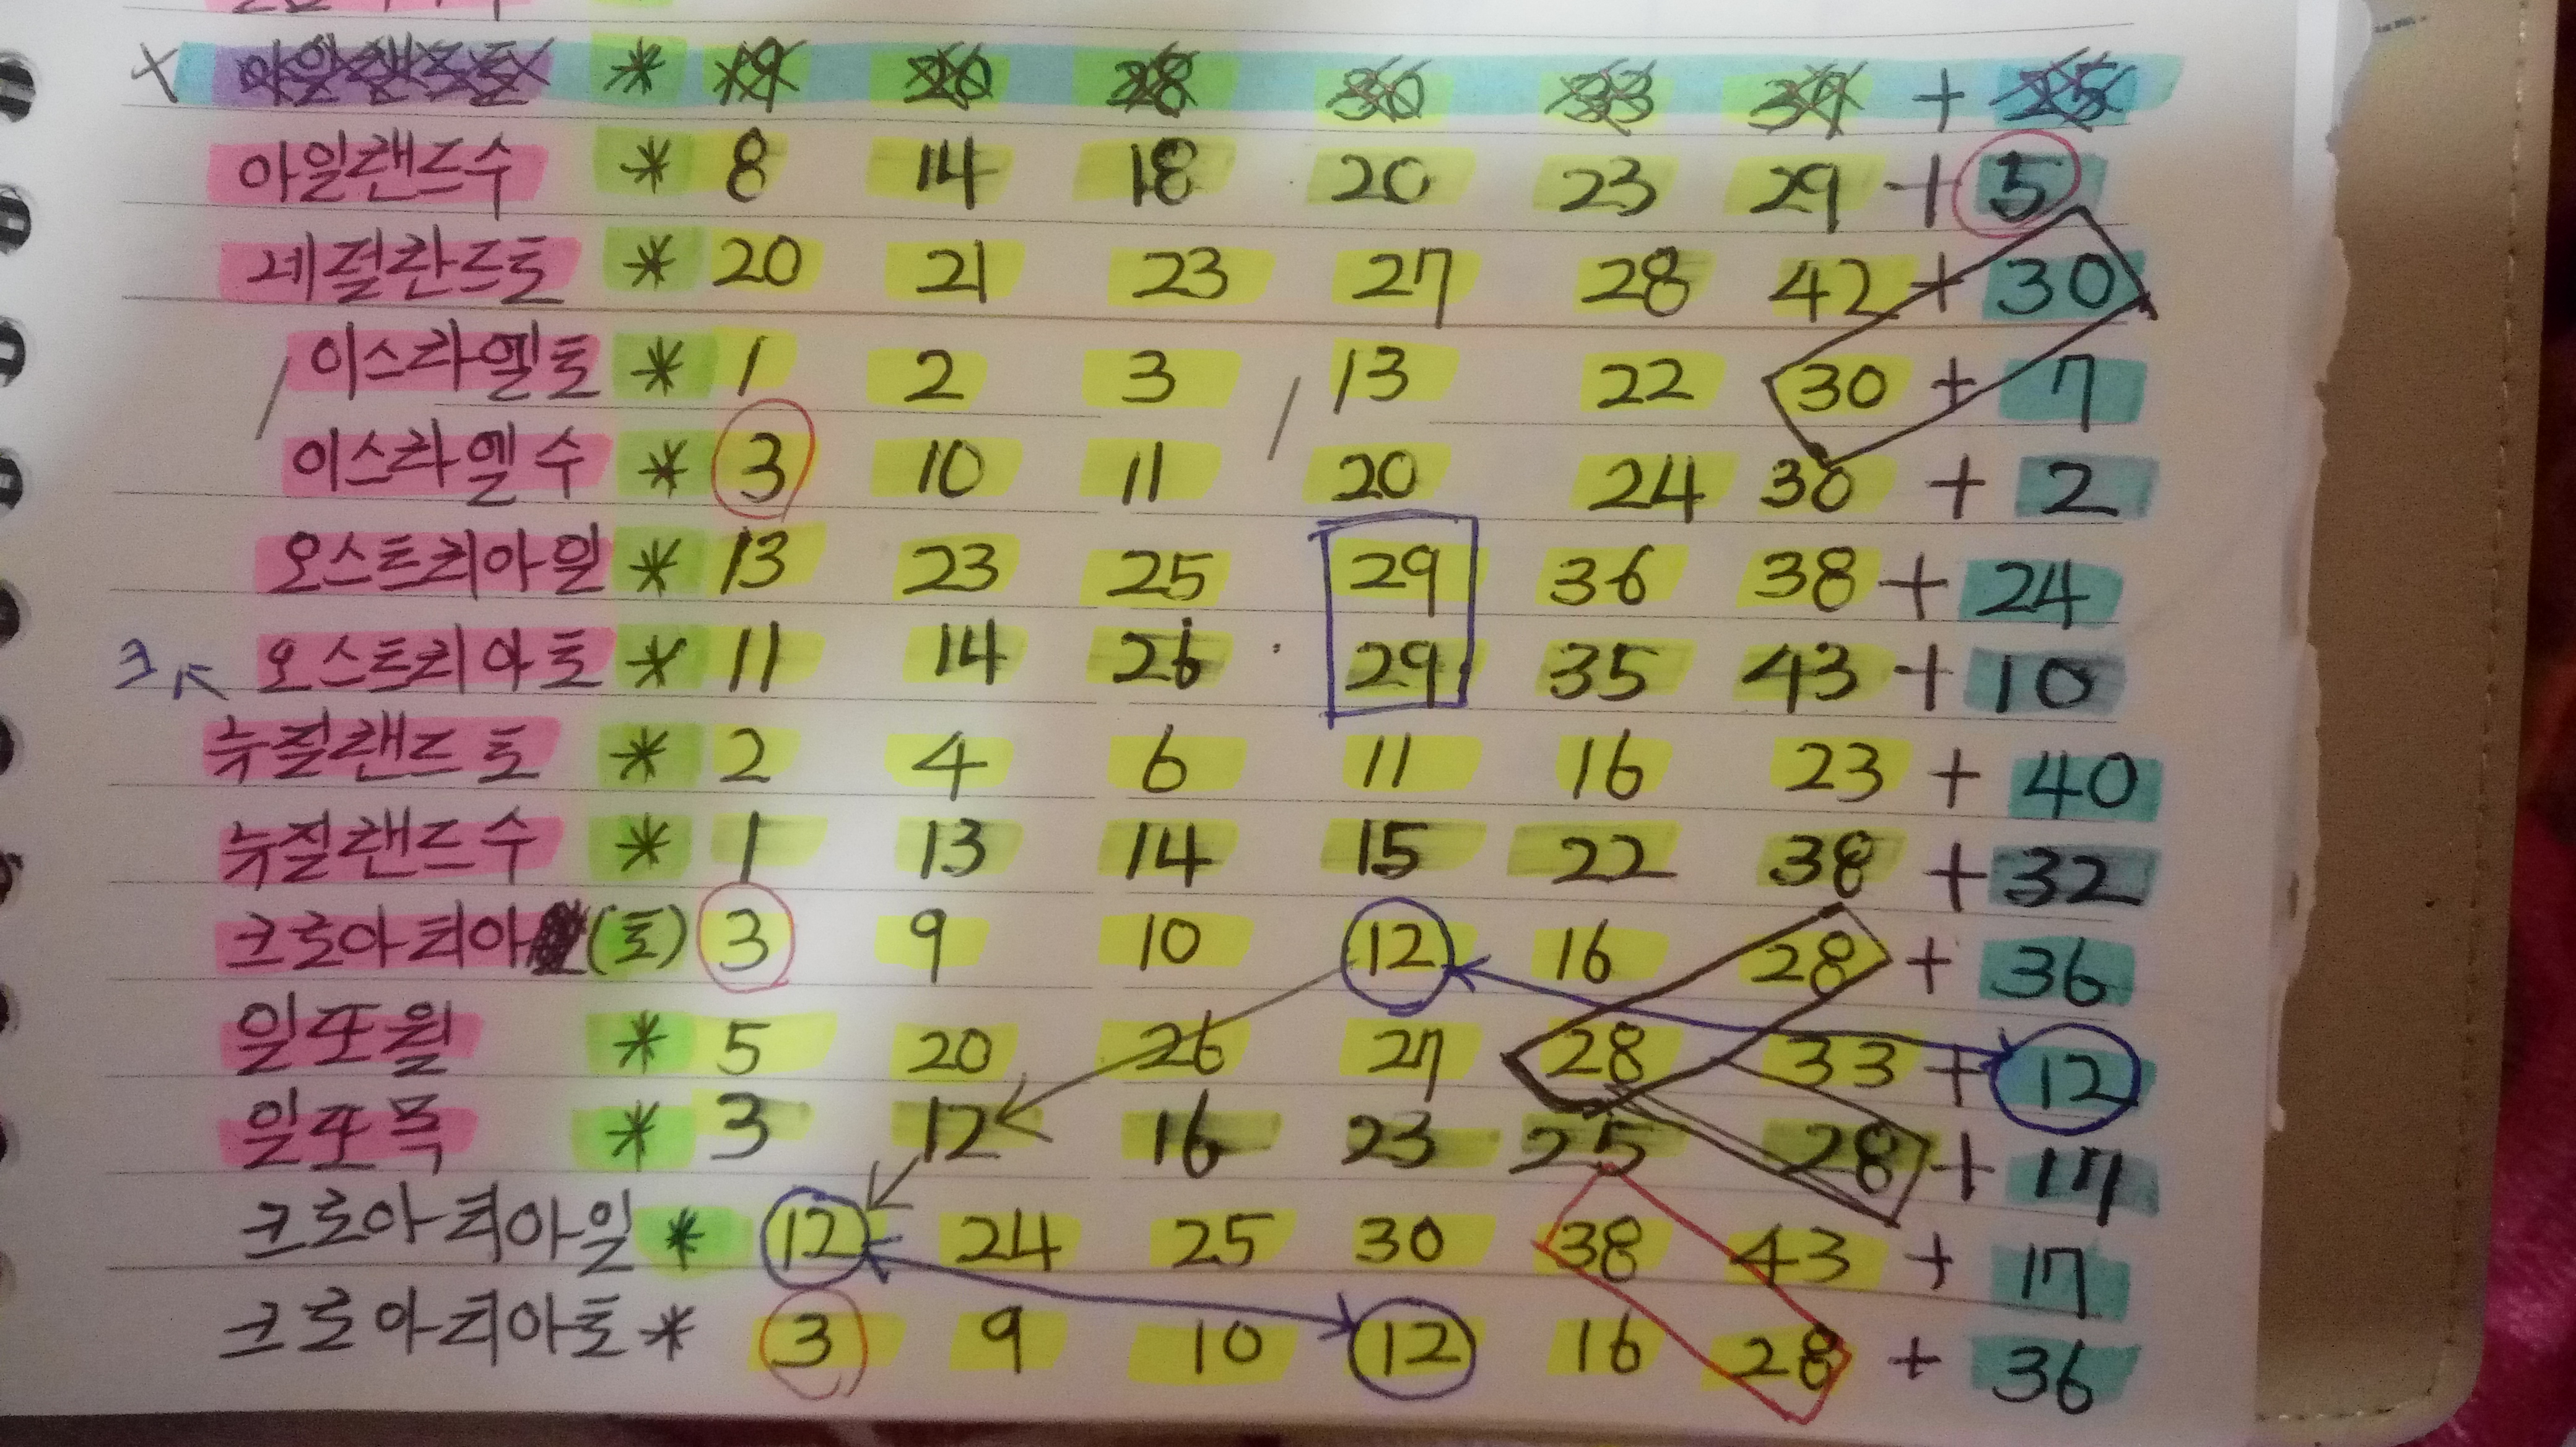 아일랜드토 * 19 26 28 30 33 39 + 25
아일랜드수 * 8 14 18 20 23 29 + 5
네덜란드토 * 20 21 23 27 28 42 + 30
이스라엘토 * 1 2 3 13 22 30 + 7
이스라엘수 * 3 10 11 20 24 30 + 2
오스트리아일 * 13 23 25 29 36 38 + 24
3 오스트리아토 * 11 14 26 29 35 43 + 10
뉴질랜드토 * 2 4 6 11 16 23 + 40
뉴질랜드수 * 1 13 14 15 22 38 + 32
크로아티아 (토) 3 9 10 12 16 28 + 36
일또월 * 5 20 26 27 28 33 + 12
일또목 * 3 12 16 23 25 28 + 17
크로아티아일 * 12 24 25 30 38 43 + 17
크로아티아토 * 3 9 10 12 16 28 + 36